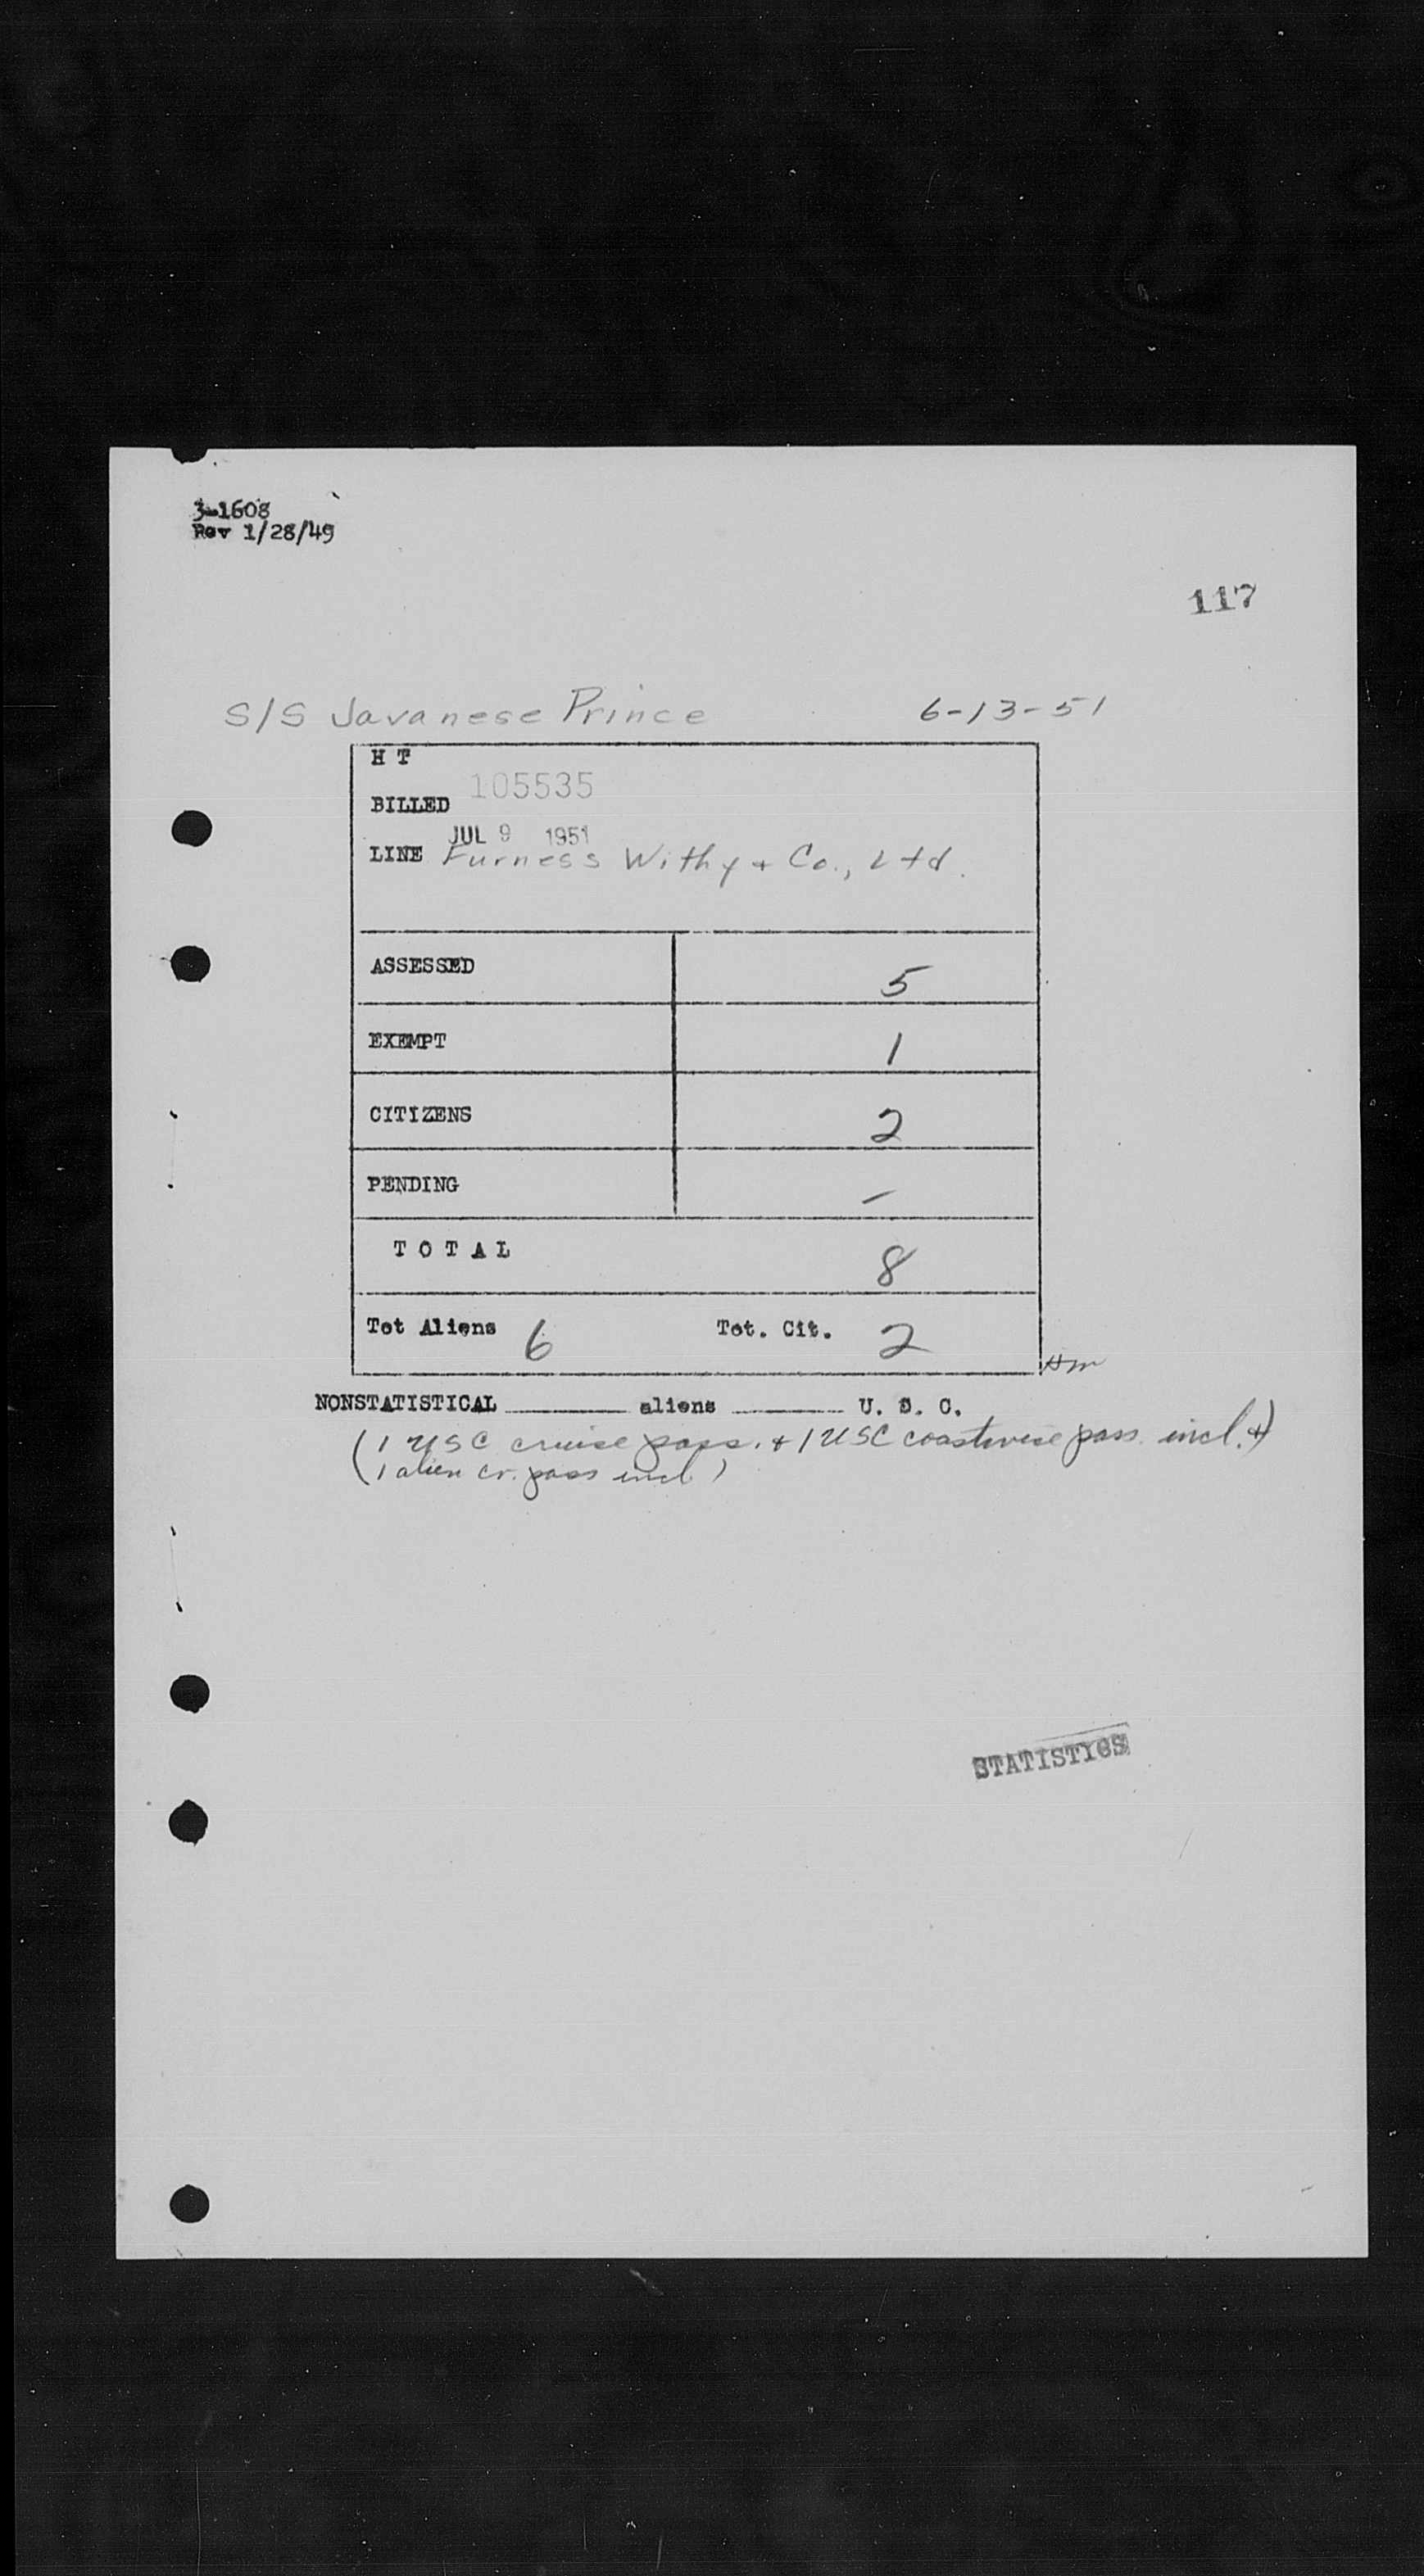 3-1608
Rev 1/28/49
117
S/S Javanese Prince 6-13-51
H T
105535
BILLED
JUL 9 1951
LINE Furness Withy + Co., Ltd.
ASSESSED 5
EXEMPT 1
CITIZENS 2
PENDING –
T O T A L 8
Tot Aliens 6 Tot. Cit. 2
Hm
NONSTATISTICAL ____ aliens ____ U. S. C.
(1 USC cruise pass. + 1 USC coastwise pass. incl. +)
(1 alien cr. pass incl)
STATISTICS